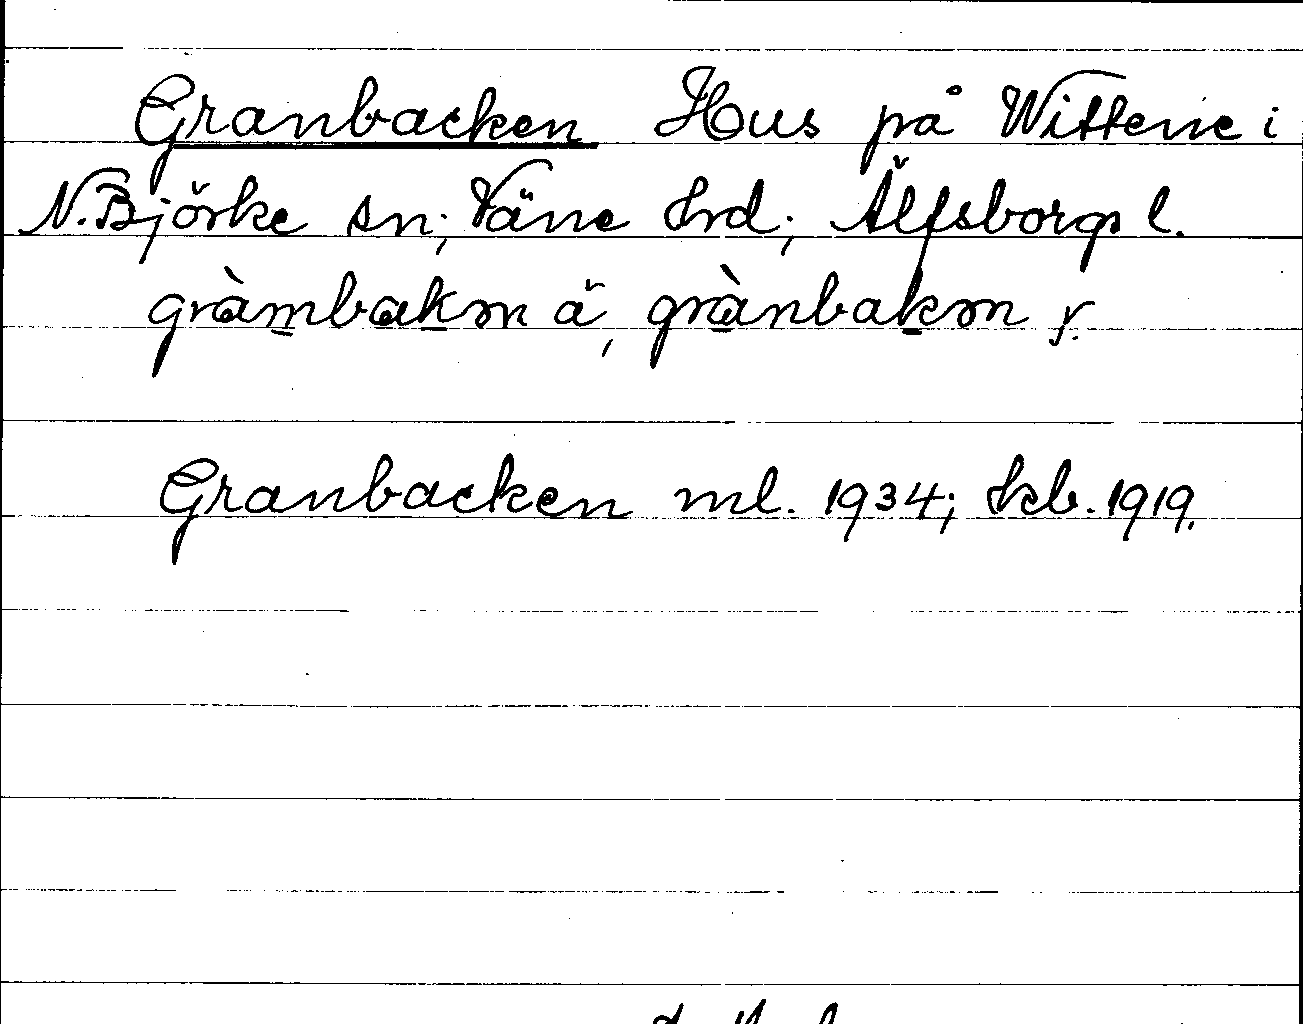 Granbacken Hus på Wittene i
N. Björke sn; Väne hrd; Älfsborgs l.
gràmbakən ä, grànbakən y.
Granbacken ml. 1934; kb. 1919.